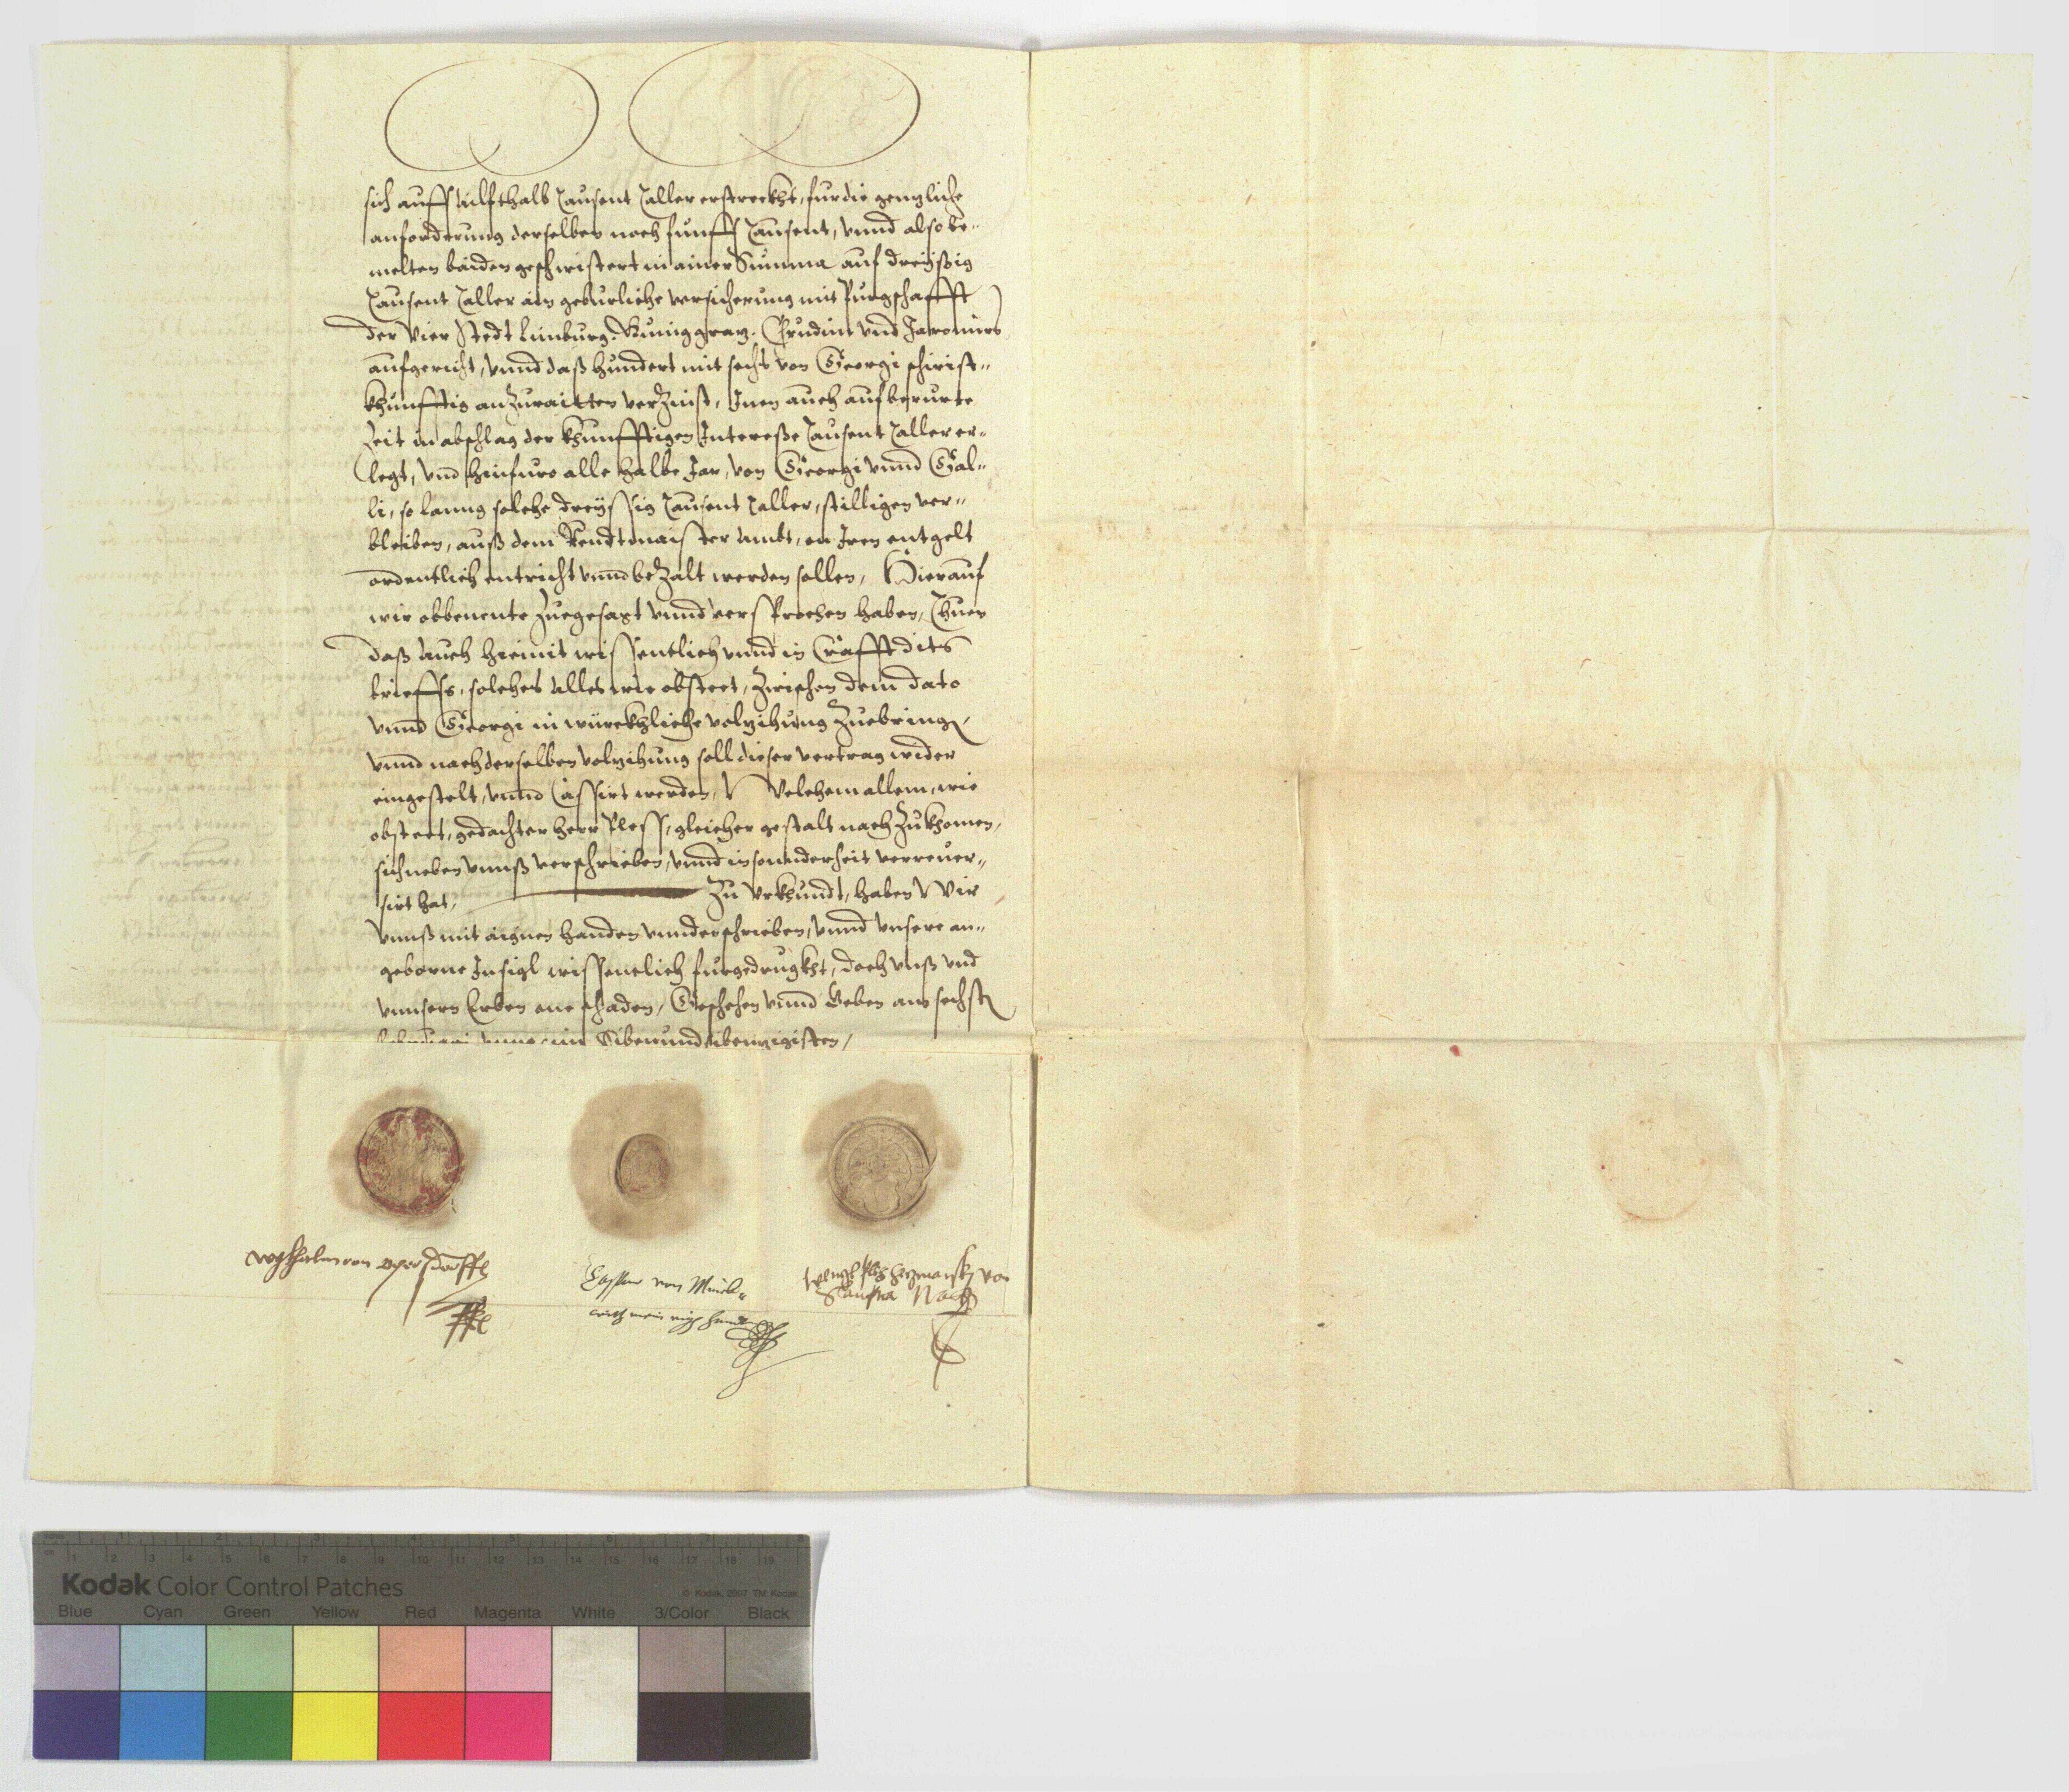 sich auff ailfthalb Tausent Taller erstreckht, fur die genzliche
anforderung derselben noch funff Tausent, vnnd also be-
melten baiden geschwistert in ainer Summa auf dreyßig
Tausent Taller ain geburliche versicherung mit Purgschafft
der vier Stedt Limburg, Kuniggraz, Crudim vnd Jaromirs
aufgericht, vnnd daß hundert mit sechs von Georgi schirist-
khunfftig anzuraitten verzinst, Inen auch auf berurte
Zeit in abschlag der khunfftigen Interesse Tausent Taller er-
legt, vnd hinfuro alle halbe Jar, von Georgi vnnd Gal-
li, so lanng solche dreyssig Tausent Taller, stilligen ver-
bleiben, auß dem Rendtmaister Ambt, on Iren entgelt
ordentlich entricht vnnd beZalt werden sollen, Hierauf
wir obbenente Zuegesagt vnnd versprochen haben, Thuen
daß auch hiemit wissentlich vnnd in Crafft dits
brieffs, solches alles wie obsteet, Zwischen dem dato
vnnd Georgi in würckhliche volzihung Zuebringen,
vnnd nach derselben volzihung soll dieser vertrag wider
eingestelt, vnnd Cassirt werden, Welchem allem, wie
obsteet, gedachter herr Pless, gleicher gestalt nach Zukhomen,
sich neben vnnß verschrieben, vnnd in sonnderheit verreuer-
sirt hat, Zu Vrkhundt, haben Wir
vnnß mit aignen handen vnnderschrieben, vnnd vnsere an-
geborne Insigl wissentlich furgedrugkht, doch vnß vnd
vnnsern Erben one schaden, Geschehen vnnd Geben am sechsten
februarj Anno im Sibenundsibenzigisten,
Wylhelm von Opersdorff
Caspar von Mmeln
mein aigh handt
von
Kodak Color Control Patches
© Kodak, 2007 TM: Kodak
Blue Cyan Green Yellow Red Magenta White 3/Color Black
1 2 3 4 5 6 7 8 9 10 11 12 13 14 15 16 17 18 19